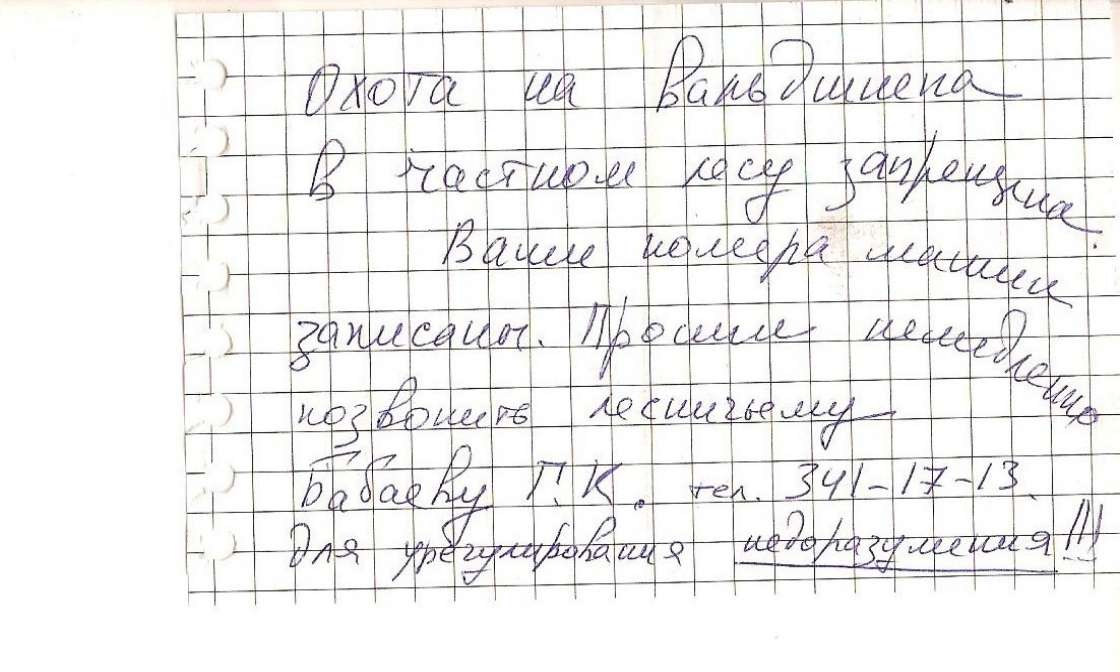 Охота на Ваньдшнепа
в частном лесу запрещена.
Ваши номера машин
записаны. Просим немедленно
позвонить лесничему
Бабаеву Г. К. тел. 341-17-13.
для урегулирования недоразумения!!!